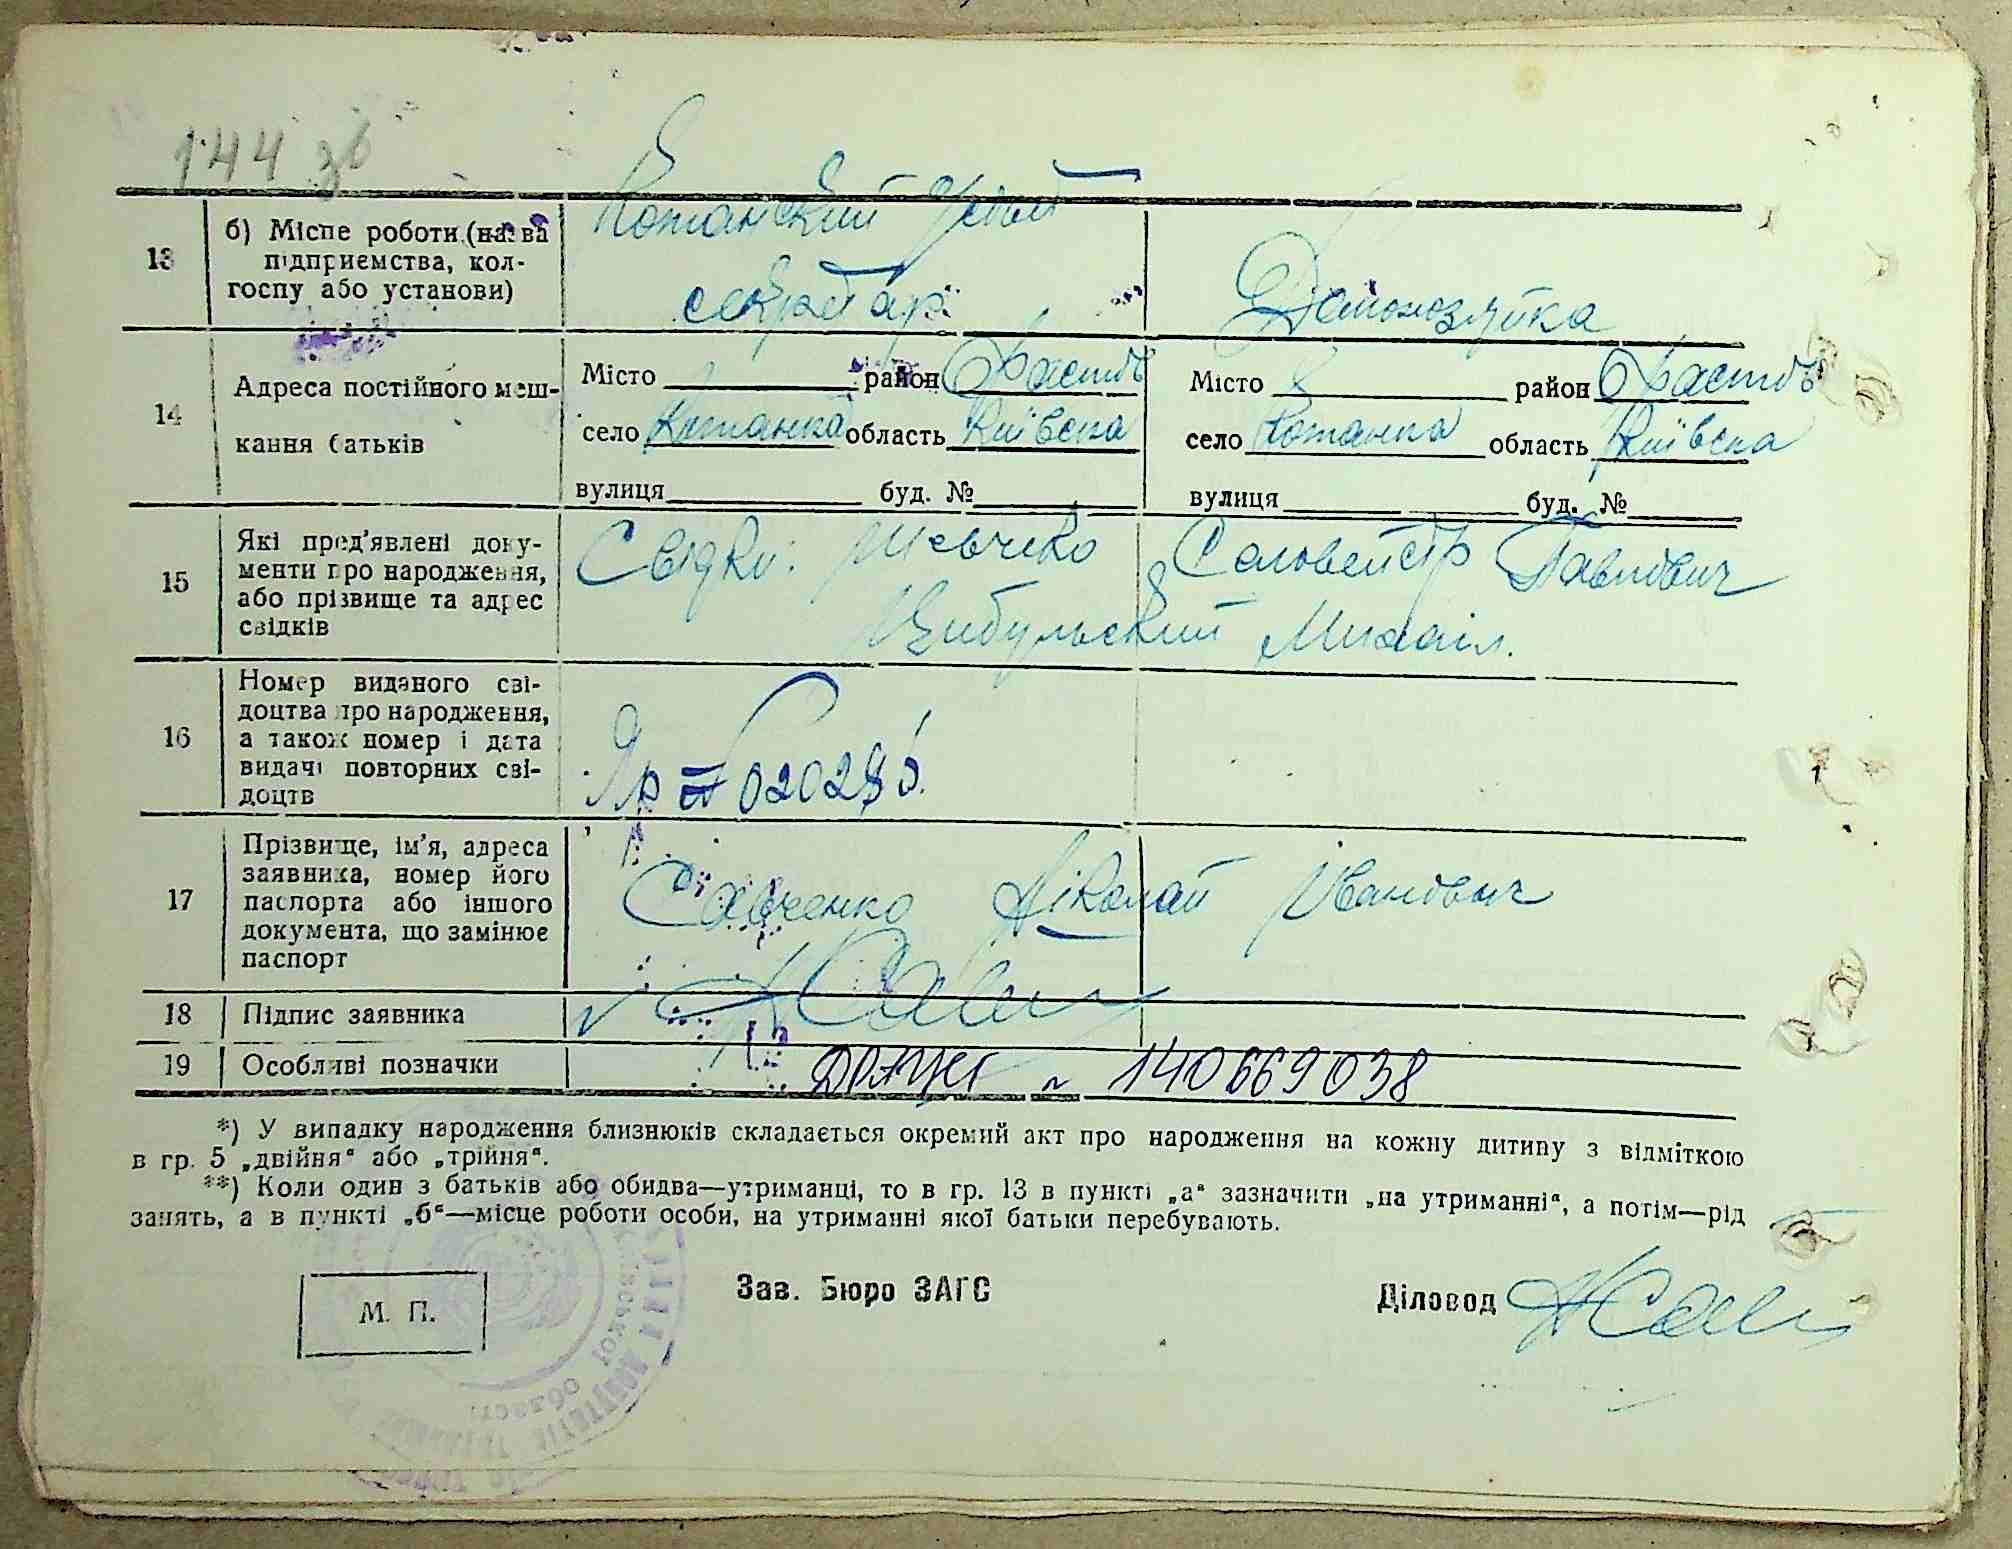 144 зв
13 б) Місце роботи (назва підприємства, кол-
госпу або установи)
секретар
Домохозяйка
14 Адреса постійного меш-
кання батьків
Місто район Фастів
село Кожанка область Київська
вулиця буд. №
Місто район Фастів
село Кожанка область Київська
вулиця буд. №
15 Які пред'явлені доку-
менти про народження,
або прізвище та адрес
свідків
Свідки: Шевченко Павлович
Цибульский Михаіл.
16 Номер виданого сві-
доцтва про народження,
а також номер і дата
видачі повторних сві-
доцтв
17 Прізвище, ім'я, адреса
заявника, номер його
паспорта або іншого
документа, що замінює
паспорт
Савченко Ніколай Іванович
18 Підпис заявника
19 Особливі позначки
140669038
*) У випадку народження близнюків складається окремий акт про народження на кожну дитину з відміткою
в гр. 5 „двійня“ або „трійня“.
**) Коли один з батьків або обидва—утриманці, то в гр. 13 в пункті „а“ зазначити „на утриманні“, а потім—рід
занять, а в пункті „б“—місце роботи особи, на утриманні якої батьки перебувають.
М. П.
Зав. Бюро ЗАГС
Діловод